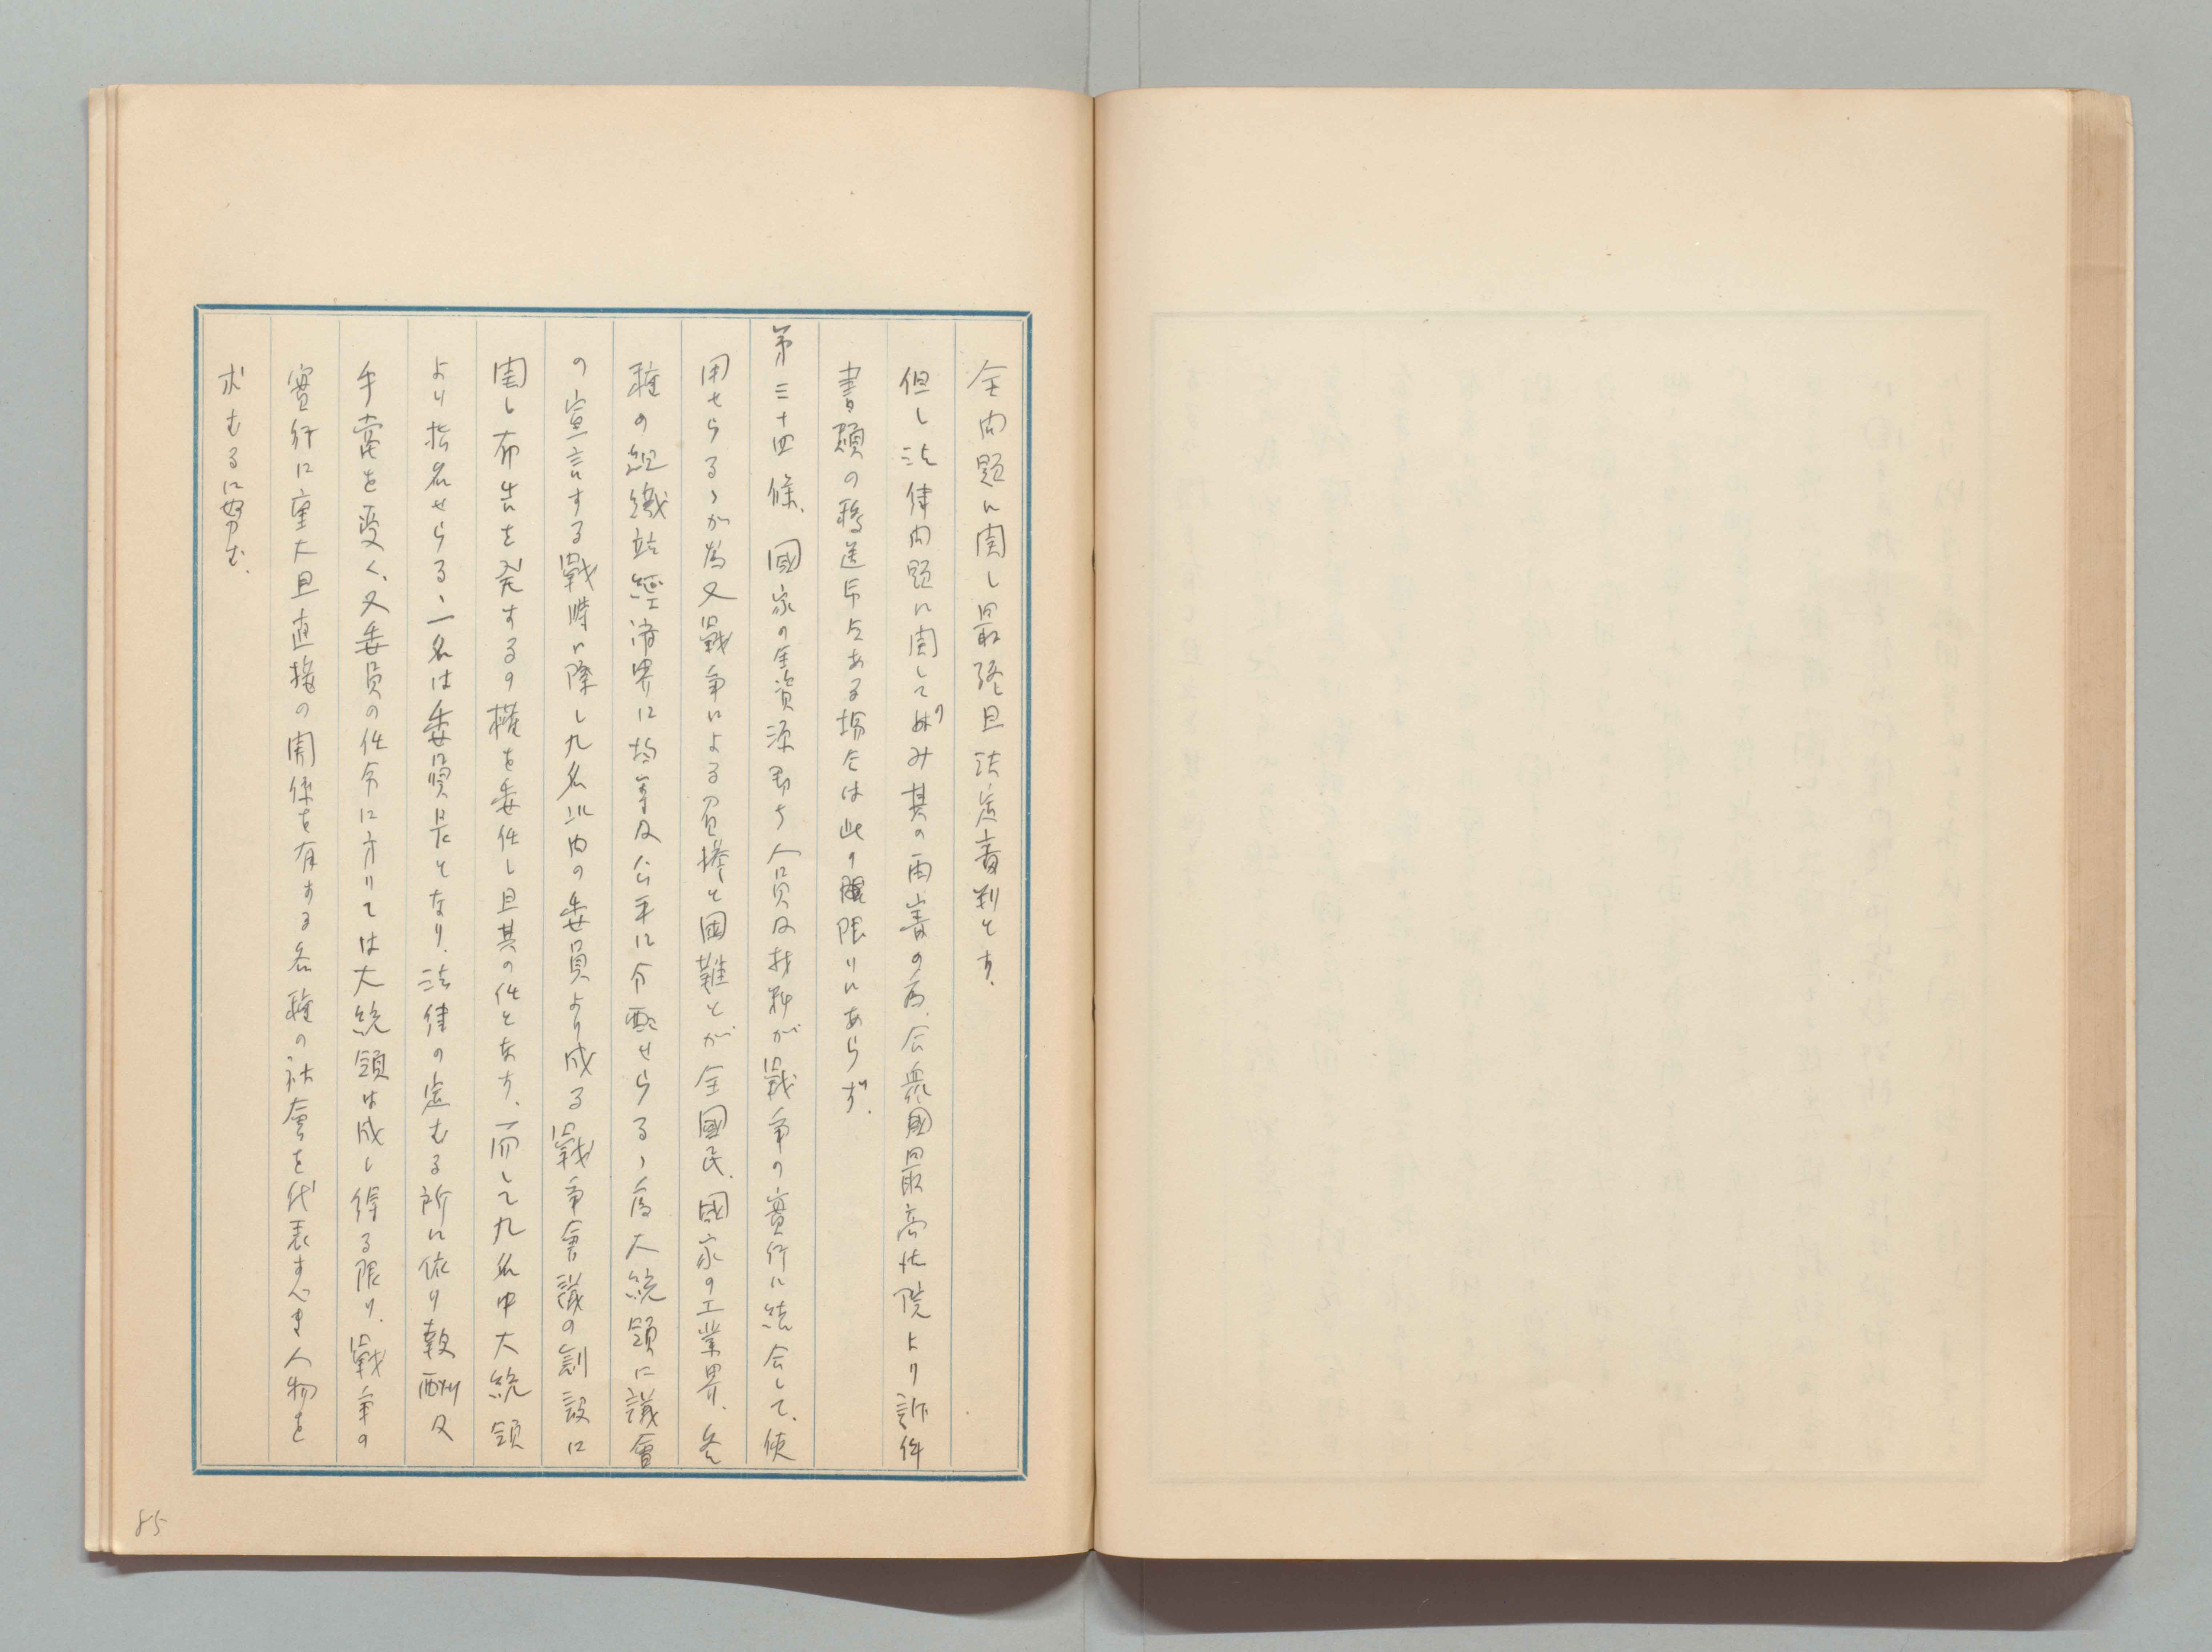 全問題に関し最終且法定審判とす.
但し法律問題に関しての み其の再審の為.合衆國最高法院より訴件
書類の移送命令ある場合は此の限りにあらず.
第三十四條.國家の全資源即ち人員及材料が戰争の實行に結合して.使
用せらるゝが為又戰争による負擔と國難とが全國民.國家の工業界.各
種の組織並経済界に均等及公平に分配せらるゝ為大統領に議會
の宣言する戰時に際し九名以内の委員より成る戰争會議の創設に
関し布告を発するの權を委任し且其の任となす.而して九名中大統領
より指名せらるゝ一名は委員長となり.法律の定むる所に依り報酬及
手當を受く.又委員の任命に方りては大統領は成し得る限り.戰争の
實行に重大且直接の関係を有する各種の社會を代表すべき人物を
求むるに努む.
85